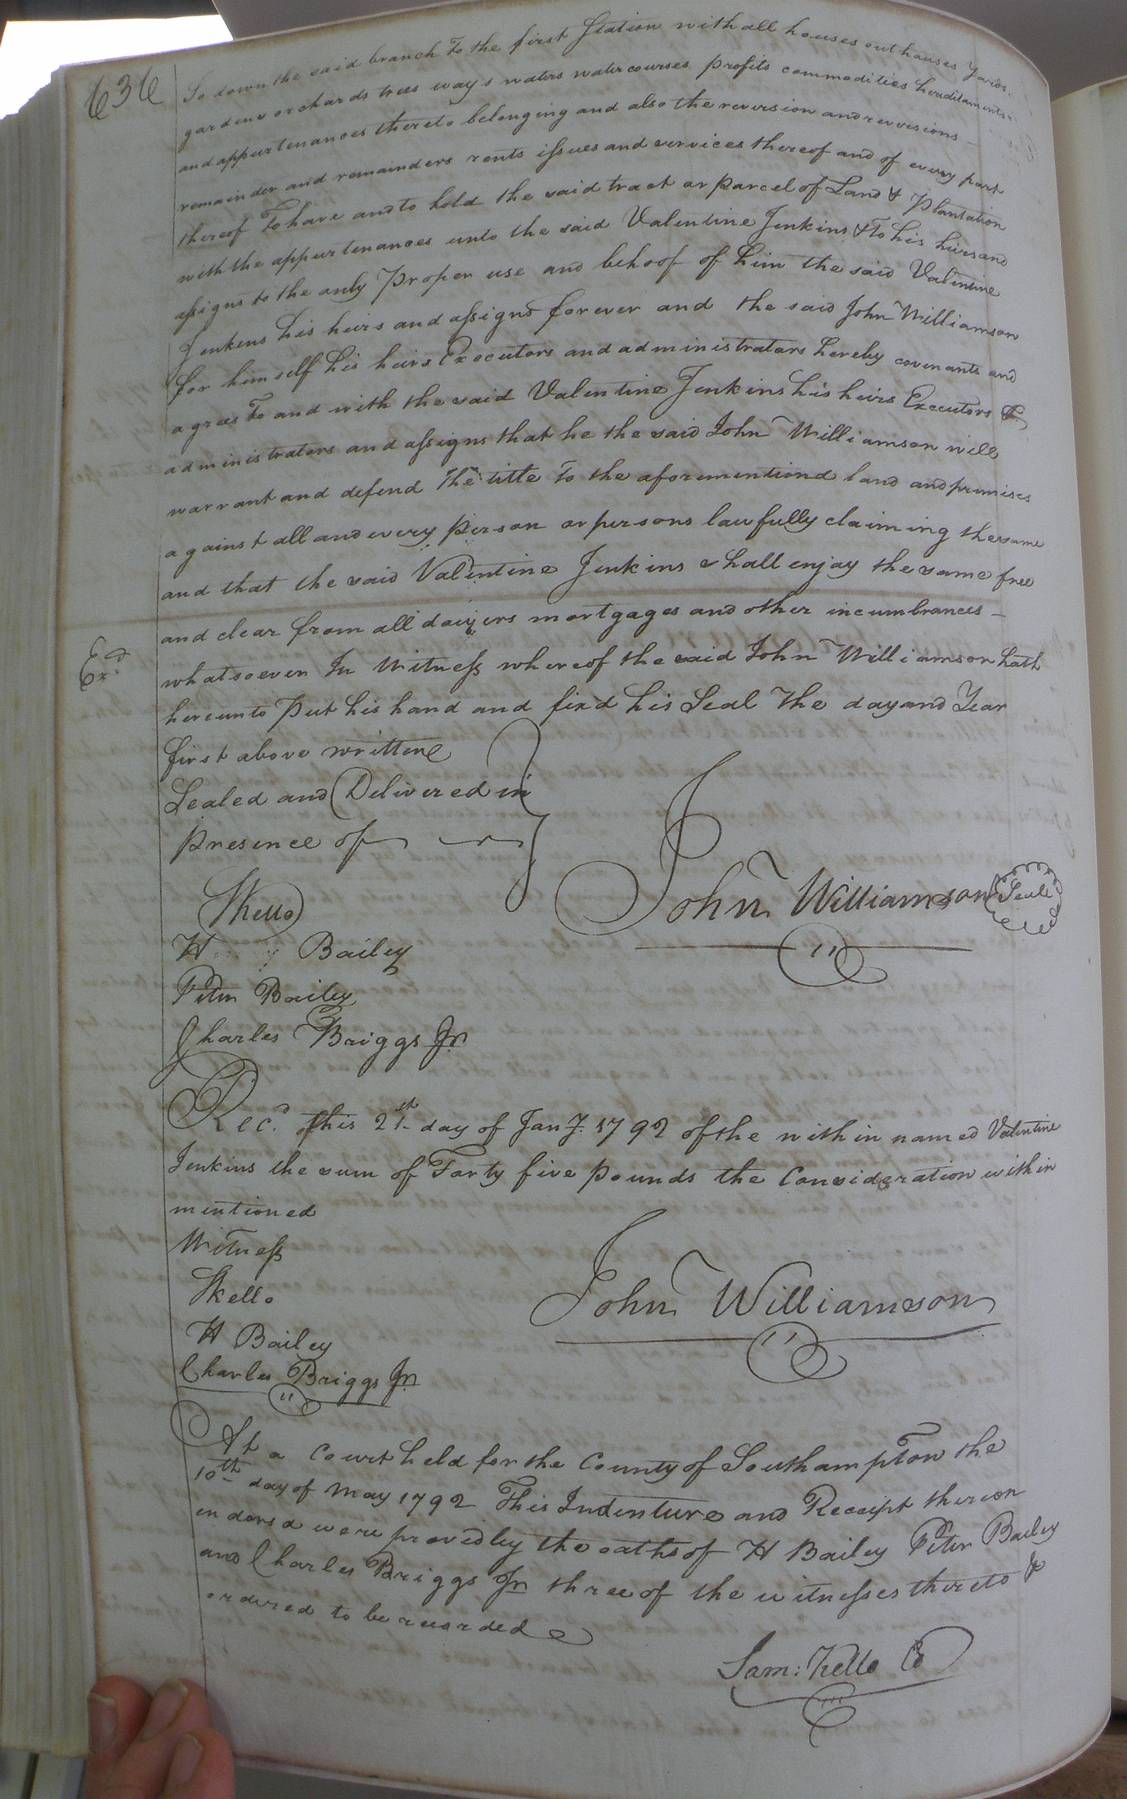 636
So down the said branch To the first Station with all houses out houses Yards
gardens orchards trees ways waters watercourses profits commodities hereditaments
and appurtenances thereto belonging and also the reversion and reversions
remainder and remainders rents issues and services thereof and of every part
thereof To have and to hold the said tract or parcel of Land & Plantation
with the appurtenances unto the said Valentine Jenkins & To his heirs and
assigns to the only Proper use and behoof of him the said Valentine
Jenkins his heirs and assigns forever and the said John Williamson
for himself his heirs Executors and administrators hereby covenants and
agrees To and with the said Valentine Jenkins his heirs Executors &
administrators and assigns that he the said John Williamson will
warrant and defend The title To the aforementiond land and premises
against all and every person or persons lawfully claiming the same
and that the said Valentine Jenkins shall enjoy the same free
and clear from all mortgages and other incumbrances
Exd
whatsoever In Witness whereof the said John Williamson hath
hereunto Put his hand and fixd his Seal The day and Year
first above written
Sealed and Delivered in
presence of
John Williamson Seal
SKello
H Bailey
Peter Bailey
Charles Briggs Jr
Rec.d this 21st day of Jany. 1792 of the within named Valentine
Jenkins the sum of Forty five pounds the Consideration within
mentioned
Witness
SKello
John Williamson
H Bailey
Charles Briggs Jr
At a Court held for the County of Southampton the
10th day of May 1792 This Indenture and Receipt thereon
indorsd were proved by the oaths of H Bailey Peter Bailey
and Charles Briggs Jr three of the witnesses thereto &
ordered to be recorded
Sam: Kello Co